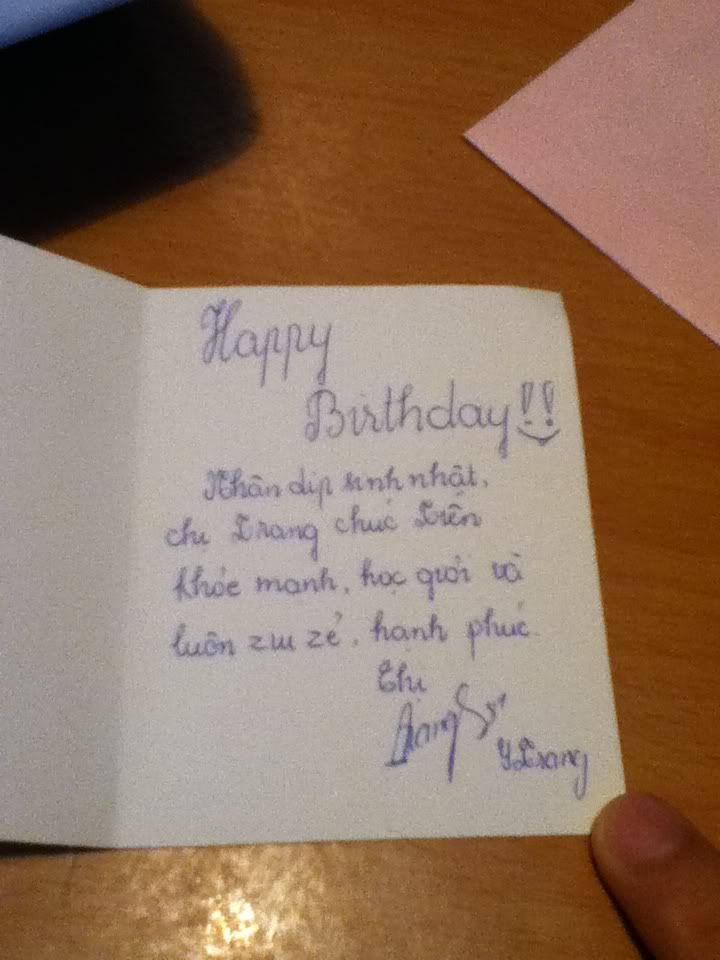 Happy
Birthday!!
Nhân dịp sinh nhật,
chị Trang chúc
khỏe mạnh, học giỏi và
luôn zui zẻ, hạnh phúc.
Chị
Trang